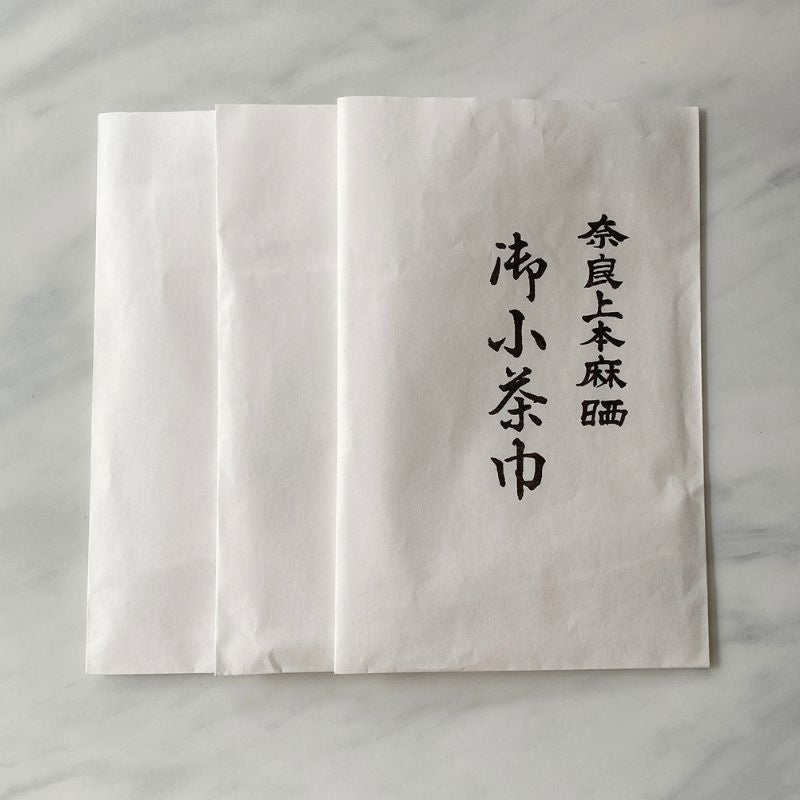 奈良上本麻晒
御小茶巾